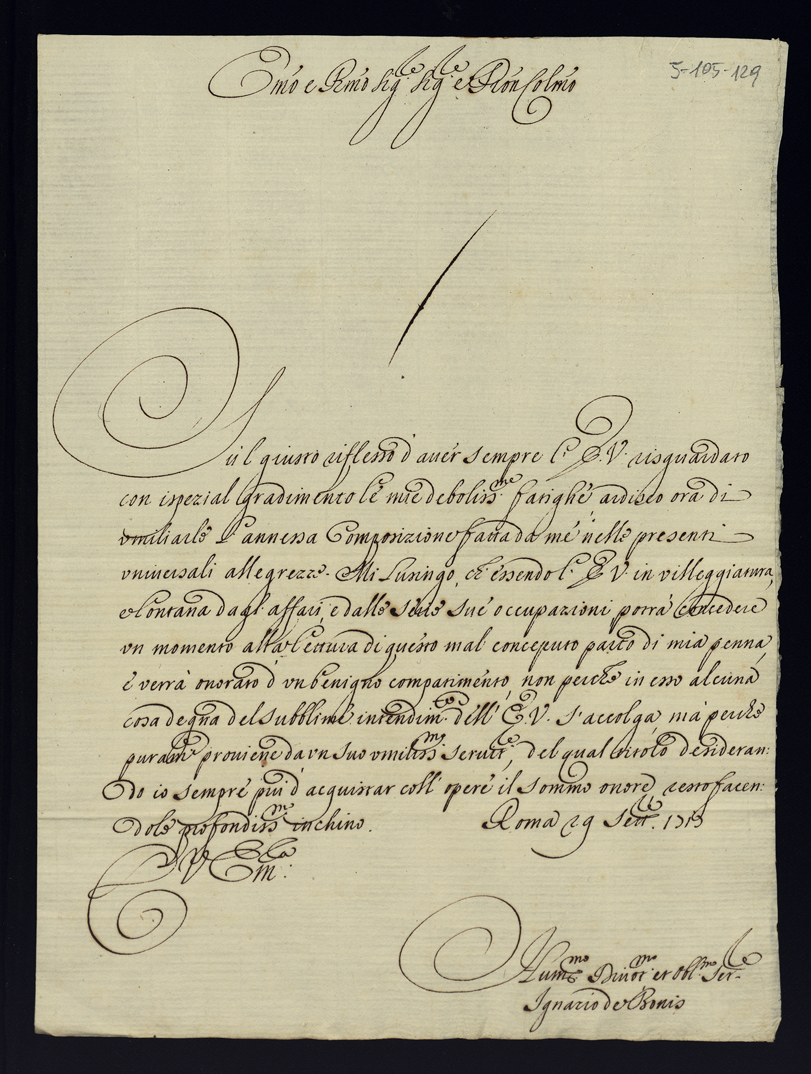 Emo e Rmo Sigre Sigre e Pron Colmo
5-105-129
Sù l giusto riflesso d' aver sempre l' E.V. risguardato
con ispezial gradimento le mie deboliss.me fatighe ardisco ora di
vmiliarle l' annessa Composizione fatta da mè nelle presenti
vniversali allegrezze. Mi Lusingo, ch' essendo l' E.V. in villeggiatura,
e lontana dagl' affari, e dalle serie sue occupazioni potrà concedere
vn momento alla lettura di questo mal conceputo parto di mia penna,
e verrà onorato d' vn benigno compatimento, non perche in esso alcuna
cosa degna del subblime intendim.to dell' E.V. s' accolga, mà perche
puram.te proviene da vn suo vmiliss.mo servit.re, del qual titolo desideran:
do io sempre più d' acquistar coll' opere il sommo onore, resto facen:
dole profondiss.mo inchino. Roma 29 Sett.bre 1713
D V Em.za
Hum.mo Divot.mo et Obl.mo Ser.re
Ignazio de Bonis